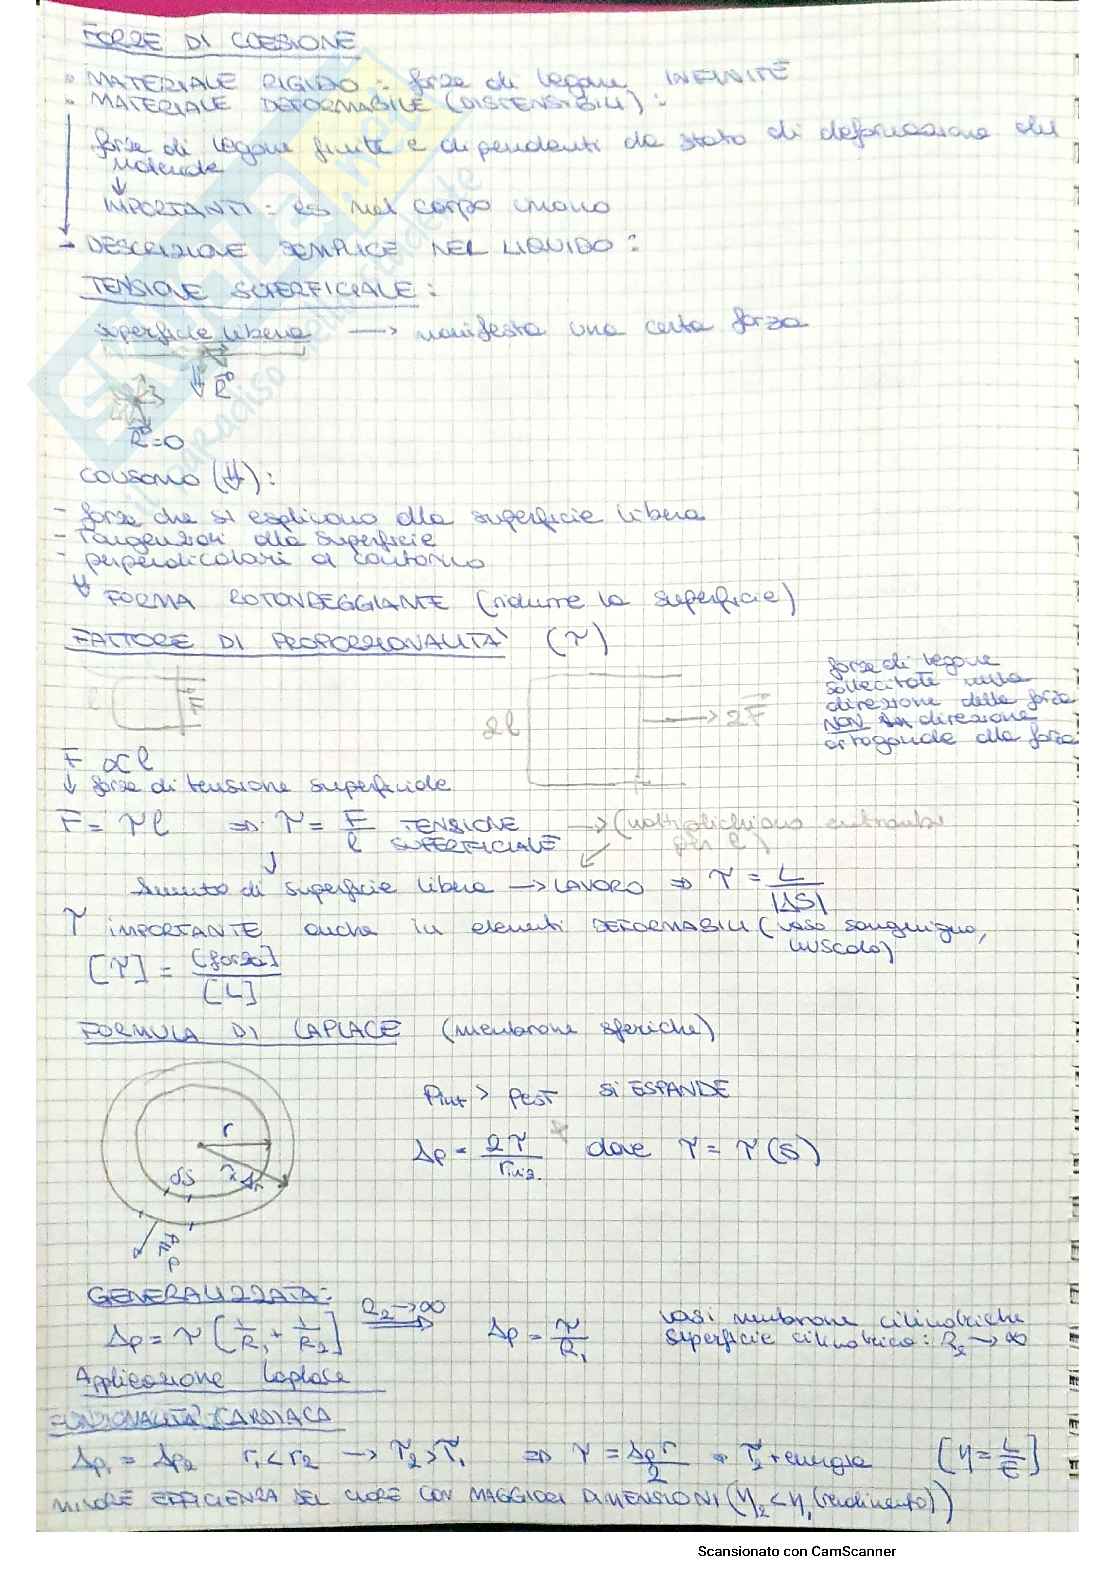 FORZE DI COESIONE
• MATERIALE RIGIDO: forze di legame INFINITE
• MATERIALE DEFORMABILE (DISTENSIBILI):
forze di legame finite e dipendenti da stato di deformazione del
molecole
↓
IMPORTANTI: es nel corpo umano
- DESCRIZIONE SEMPLICE NEL LIQUIDO:
TENSIONE SUPERFICIALE:
superficie libera → manifesta una certa forza
R
R=0
causano (⇓):
- forze che si esplicano alla superficie libera
- tangenziali alla superficie
- perpendicolari al contorno
⇓ FORMA ROTONDEGGIANTE (ridurre la superficie)
FATTORE DI PROPORZIONALITÀ (τ)
l F
2l 2F
forze di legame
sollecitate nella
direzione della forza
NON in direzione
ortogonale alla forza
F ∝ l
↓ forze di tensione superficiale
F = τl ⇒ τ = F/l TENSIONE SUPERFICIALE → (moltiplichiamo entrambi per l)
↓
Aumento di superficie libera → LAVORO ⇒ τ = L/|ΔS|
τ IMPORTANTE anche in elementi DEFORMABILI (vaso sanguigno,
muscolo)
[τ] = [forza]/[L]
FORMULA DI LAPLACE (membrane sferiche)
Pint > pest SI ESPANDE
r
Δp = 2τ/r dove τ = τ(S)
dS
Fp
GENERALIZZATA:
Δp = τ [1/R1 + 1/R2] R2→∞ ⇒ Δp = τ/R1
vasi membrane cilindriche
superficie cilindrica: R2 → ∞
Applicazione Laplace
FUNZIONALITÀ CARDIACA
Δp1 = Δp2 r1 < r2 → τ2 > τ1 ⇒ τ = Δp r/2 τ2 + energia [η = L/E]
MINORE EFFICIENZA DEL CUORE CON MAGGIORI DIMENSIONI (η2 < η1 (rendimento))
SKUOLA.net
il paradiso dello studente
Scansionato con CamScanner